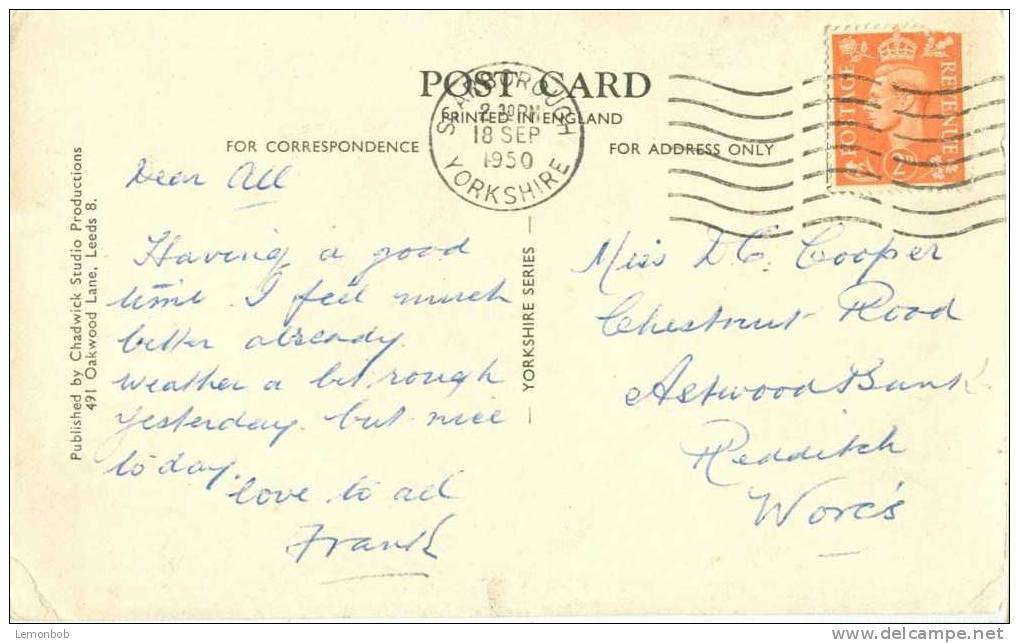 POST CARD
PRINTED IN ENGLAND
FOR CORRESPONDENCE
FOR ADDRESS ONLY
SCARBOROUGH
2 30PM
18 SEP
1950
YORKSHIRE
POSTAGE
REVENUE
2D
Dear All
Having a good
time. I feel much
better already.
Weather a bit rough
yesterday. but nice
to day.
love to all
Frank
Miss D.C. Cooper
Chestnut Road
Astwood Bank
Redditch
Worc's
YORKSHIRE SERIES
Published by Chadwick Studio Productions
491 Oakwood Lane, Leeds 8.
Lemonbob
delcampe.net